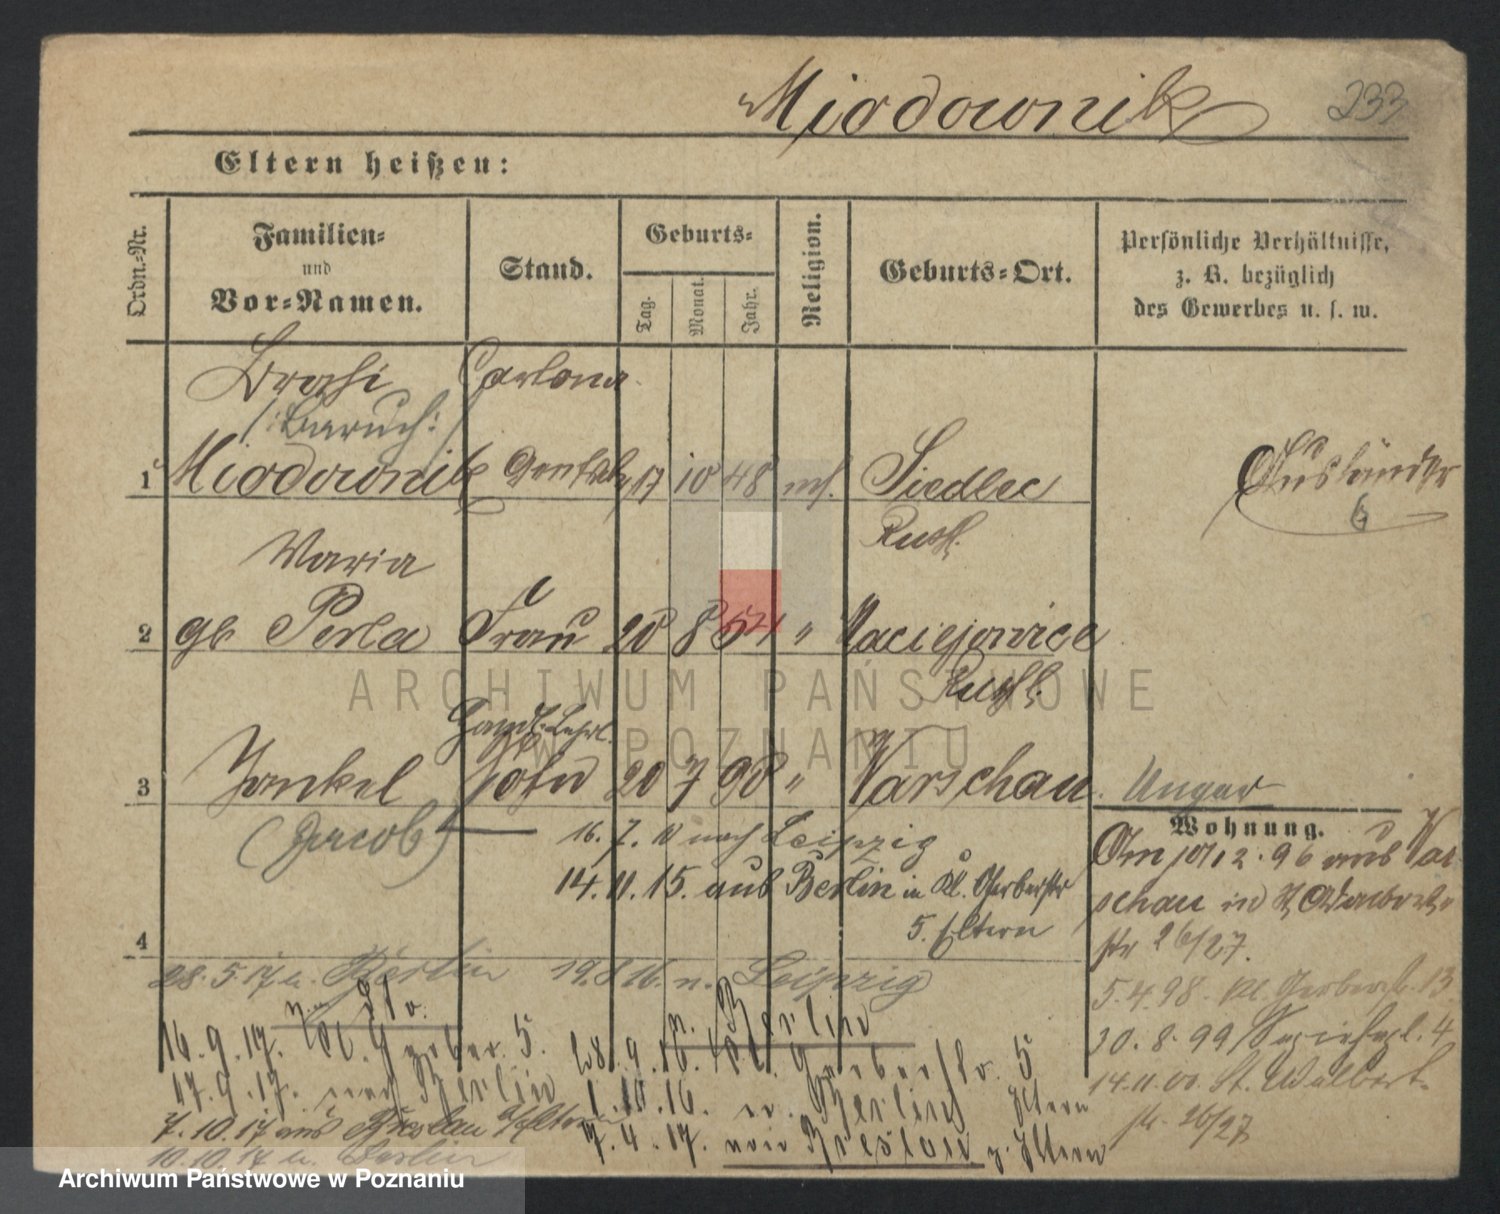 Miodownik 233
Eltern heißen:
Ordn.-Nr.
Familien-
und
Vor-Namen.
Stand.
Geburts-
Tag.
Monat.
Jahr.
Religion.
Geburts-Ort.
Persönliche Verhältnisse,
z. B. bezüglich
des Gewerbes u. s. w.
(: Baruch :)
1 Miodownik 17 10 48 Siedlec Ausländer
Russl.
Maria
2 gb Perla Frau 20 8 " Maciejowice
Russl.
Handl. Lehrl.
3 Jankel Sohn 20 7 90 " Warschau Ungar
(Jacob)
16. 7. 11 nach Leipzig
14. 11. 15. aus Berlin in Kl. Gerberstr
5. Eltern
Wohnung.
Am 12. 96 aus War
schau in
str 26/27.
5. 4. 98. Kl. Gerberstr. 13
30. 8. 99 4
14. 11. 00. St. Adalbert
str. 26/27
4
28. 5. 17 n. Berlin 19. 8 16. n. Leipzig
n. Berlin
16. 9. 17. Kl. Gerber. 5. 28. 9. 16. Kl. Gerberstr. 5
17. 9. 17. nach Berlin 1. 10. 16. n. Berlin Eltern
7. 10. 17 aus Breslau Eltern 7. 4. 17. von Breslau z. Eltern
10. 10. 17 n. Berlin
ARCHIWUM PAŃSTWOWE
W POZNANIU
Archiwum Państwowe w Poznaniu